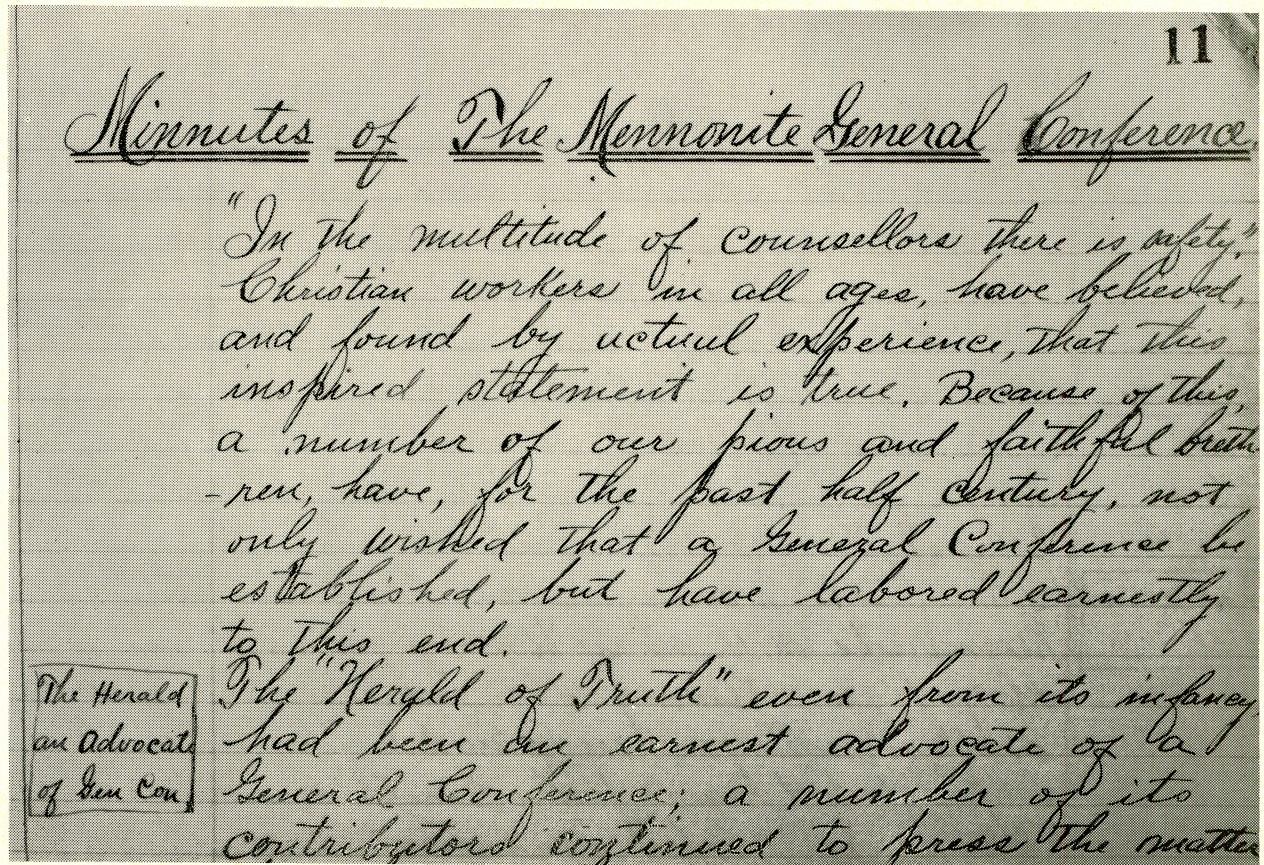 11
Minnutes of The Mennonite General Conference.
"In the multitude of counsellors there is safety."
Christian workers in all ages, have believed,
and found by actual experience, that this
inspired statement is true. Because of this,
a number of our pious and faithful breth-
-ren, have, for the past half century, not
only wished that a General Conference be
established, but have labored earnestly
to this end.
The "Herald of Truth" even from its infancy,
had been an earnest advocate of a
General Conference; a number of its
contributors continued to press the matter
The Herald
an Advocate
of Gen Con